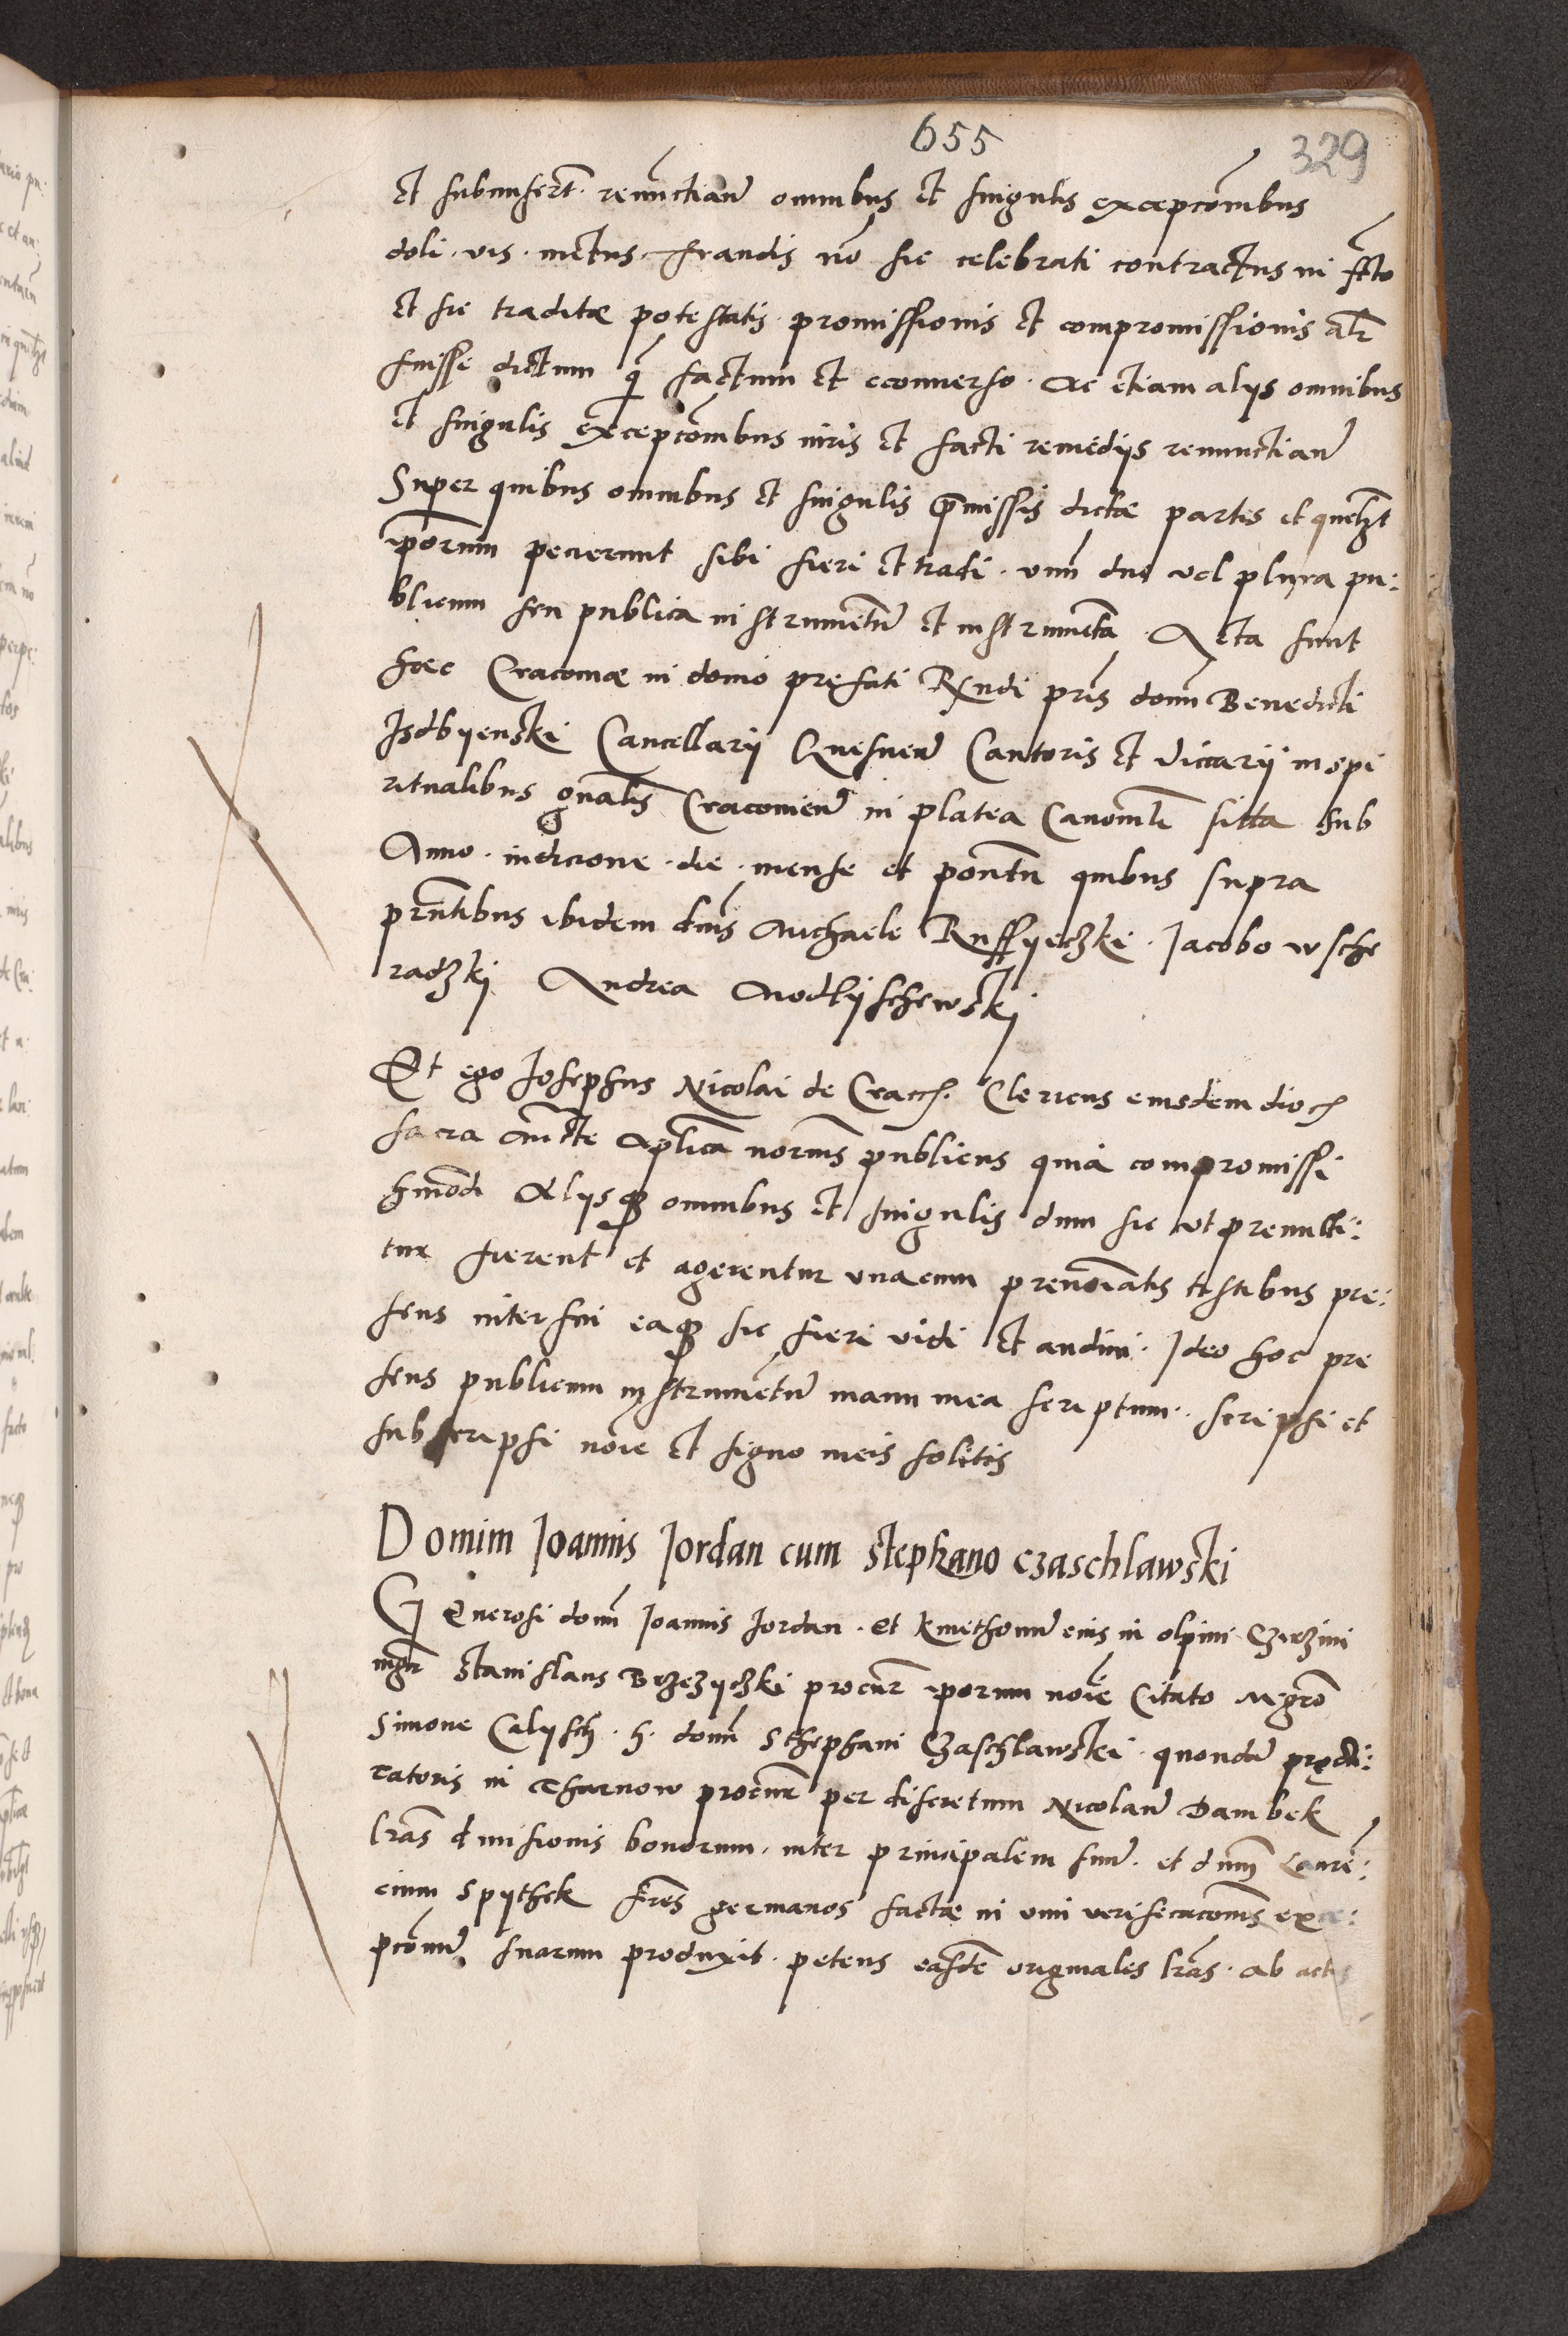 655
329
et subinsert. renunctian̄ omnibus et singulis excepcōnibus
doli. vis. metus. fraudis nō sic celebrati contractus in fcto
et sic traditæ potestatis promissionis et compromissionis alr̄
fuisse dictum q̄ factum et econuerso. ac etiam alijs omnibus
et singulis excepcōnibus iuris et facti remedijs renunctian̄
Super quibus omnibus et singulis p̄missis dictæ partes et quelȝt
ip̄orum pecierunt sibi fieri et tradi. vnū duo vel plura pu:
blicum seu publica instrumētū et instrumēta. Acta sunt
hæc Cracouiæ in domo prefati Rndi pris̄ domī Benedicti
Isdbyenski Cancellarij Gnesnen̄ Cantoris et Viccarij in spi
ritualibus gnālis Cracouien̄ in platea Canonicī sitta sub
Anno. indicione. die. mense et pontū quibus supra
prn̄tibus ibidem dnīs Michaele Russyeczki. Jacobo wsche
radzkij Andrea Modlyschewskj
Et ego Josephus Nicolai de Crac. Clericus eiusdem dioc.
sacra auctē Aplica notariūs publicus quia compromissi
hmōdi Alijsqȝ omnibus et singulis dum sic vt premitti:
tur fierent et agerentur vnacum prenoīatis testibus pre:
sens interfui eaqȝ sic fieri vidi et audiui. Ideo hoc pre
sens publicum instrumētū manu mea scriptum. scripsi et
subscripsi noīe et signo meis solitis
Domini Joannis Jordan cum Stephano Czaschlawski
Generosi domī Joannis Jordan. et kmethonū eius in olpini Czerzini
mgr̄ Stanislaus Brzezyczki procur̄ ip̄orum noīe Citato Mgrō
Simone Calysch. G. domī Sthephani Czaschlawski. quondā predi:
catoris in Tharnow procur̄ per discretum Nicolaū Dambek
lrās diuisionis bonorum. inter principalem suū. et dnm̄ Laurē:
cium Spythek frēs germanos factæ in vim verificacōnis exce:
pcōnū suarum produxit. petens easdē originales lrās. ab actis